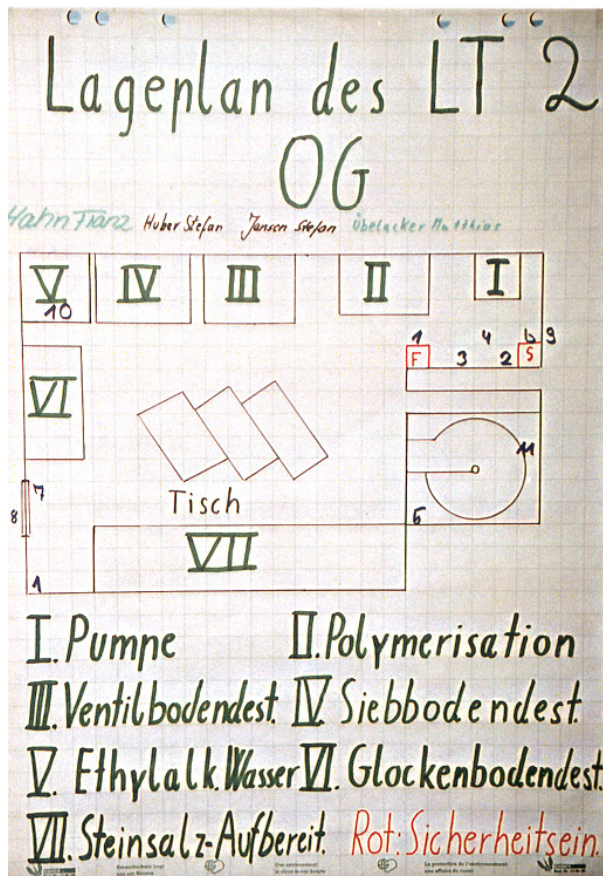 Lageplan des LT 2
OG
Hahn Franz Huber Stefan Jansen Stefan Übelacker Matthias
V IV III II I
10
1 4 6 9
F 3 2 S
VI
11
7
Tisch
8
5
VII
1
I. Pumpe II. Polymerisation
III. Ventilbodendest. IV Siebbodendest.
V. Ethylalk. Wasser VI. Glockenbodendest.
VII. Steinsalz-Aufbereit. Rot: Sicherheitsein.